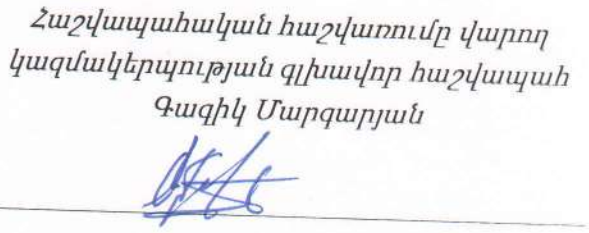 Հաշվապահական հաշվառումը վարող
կազմակերպության գլխավոր հաշվապահ
Գագիկ Մարգարյան